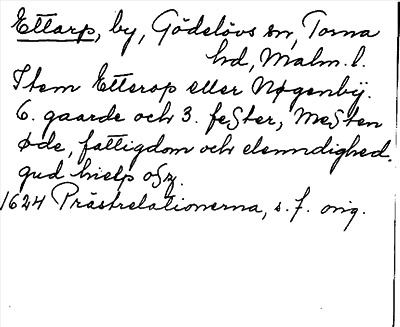 Ettarp, by, Gödelövs sn, Torna
hd, Malm. l.
Item Etterop eller Nøgenbÿ.
6. gaarde och 3. feSter, MeSten
øde, fattigdom och elenndighed.
gud hielp oSz.
1624 Prästrelationerna, s. 7. orig.